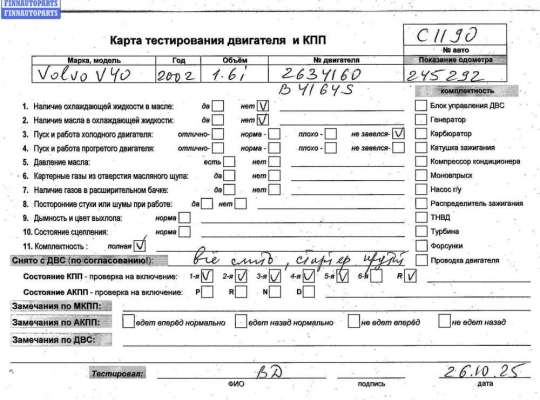 FINNAUTOPARTS
FINNAUTOPARTS
Карта тестирования двигателя и КПП
С1190
№ авто
Марка, модель Год Объём № двигателя Показание одометра
Volvo V40 2002 1.6i 2634160 245292
B4164S
комплектность
1. Наличие охлаждающей жидкости в масле: да нет
2. Наличие масла в охлаждающей жидкости: да нет
3. Пуск и работа холодного двигателя: отлично- норма - плохо - не завелся-
4. Пуск и работа прогретого двигателя: отлично- норма - плохо - не завелся-
5. Давление масла: есть нет
6. Картерные газы из отверстия масляного щупа: да нет
7. Наличие газов в расширительном бачке: да нет
8. Посторонние стуки или шумы при работе: да нет
9. Дымность и цвет выхлопа: норма
10. Состояние сцепления: норма
11. Комплектность : полная
Блок управления ДВС
Генератор
Карбюратор
Катушка зажигания
Компрессор кондиционера
Моновпрыск
Насос г/у
Распределитель зажигания
ТНВД
Турбина
Форсунки
Проводка двигателя
Снято с ДВС (по согласованию!): все снято, стартер
Состояние КПП - проверка на включение: 1-я 2-я 3-я 4-я 5-я 6-я R
Состояние АКПП - проверка на включение: P R N D
Замечания по МКПП:
Замечания по АКПП: едет вперёд нормально едет назад нормально не едет вперёд не едет назад
Замечания по ДВС:
Тестировал: ВД 26.10.25
ФИО подпись дата